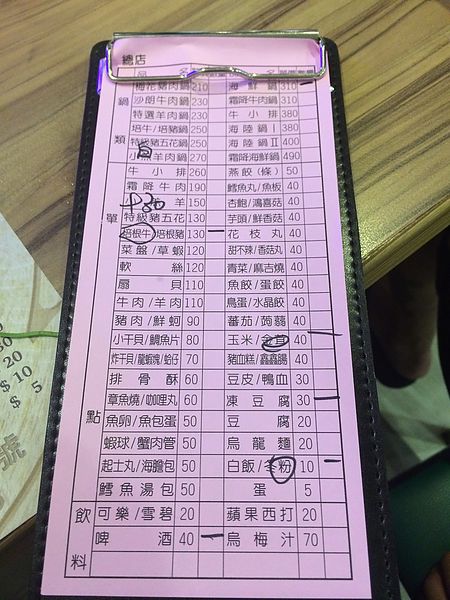 總店
梅花豬肉鍋 210 海鮮鍋 310
沙朗牛肉鍋 230 霜降牛肉鍋 310
特選羊肉鍋 230 牛小排 380
培牛/培豬鍋 250 海陸鍋Ⅰ 380
特級豬五花鍋 250 海陸鍋Ⅱ 400
羊肉鍋 270 霜降海鮮鍋 490
牛小排 260 燕餃(條) 50
霜降牛肉 190 鱈魚丸/魚板 40
羊 150 杏鮑/鴻喜菇 40
特級豬五花 130 芋頭/鮮香菇 40
培根牛/培根豬 130 花枝丸 40
菜盤/草蝦 120 甜不辣/香菇丸 40
軟絲 120 青菜/麻吉燒 40
扇貝 110 魚餃/蛋餃 40
牛肉/羊肉 110 鳥蛋/水晶餃 40
豬肉/鮮蚵 90 蕃茄/蒟蒻 40
小干貝/鯛魚片 80 玉米/ 40
炸干貝/龍蝦魂/蛤仔 70 豬血糕/鑫鑫腸 40
排骨酥 60 豆皮/鴨血 30
章魚燒/咖哩丸 60 凍豆腐 30
魚卵/魚包蛋 50 豆腐 20
蝦球/蟹肉管 50 烏龍麵 20
起士丸/海膽包 50 白飯/冬粉 10
鱈魚湯包 50 蛋 5
可樂/雪碧 20 蘋果西打 20
啤酒 40 烏梅汁 70
鍋類
單點
飲料